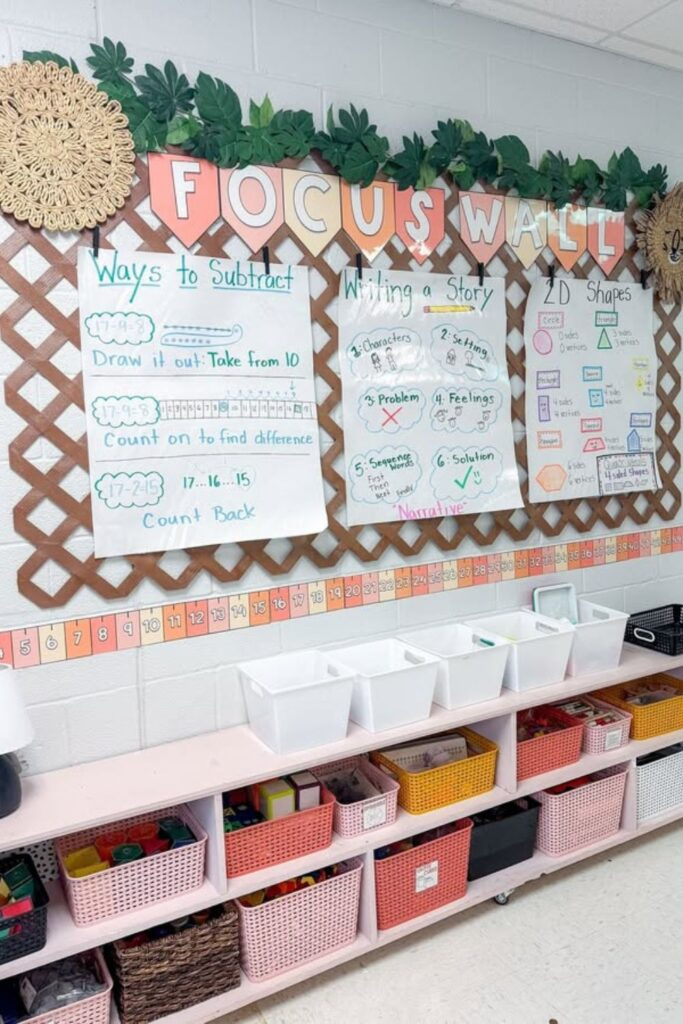 FOCUS WALL
Ways to Subtract
17-9=8
Draw it out: Take from 10
17-9=8
Count on to find difference
17-2=15
17...16...15
Count Back
Writing a Story
1: Characters
2: Setting
3: Problem
4: Feelings
5: Sequence Words
First
Then
Next Finally
6: Solution
"Narrative"
2D Shapes
Circle
0 sides
0 vertices
Triangle
3 sides
3 vertices
4 sides
4 vertices
6 sides
6 vertices
4 sided shapes
5 6 7 8 9 10 11 12 13 14 15 16 17 18 19 20 21 22 23 24 25 26 27 28 29 30 31 32 33 34 35 36 37 38 39 40 41